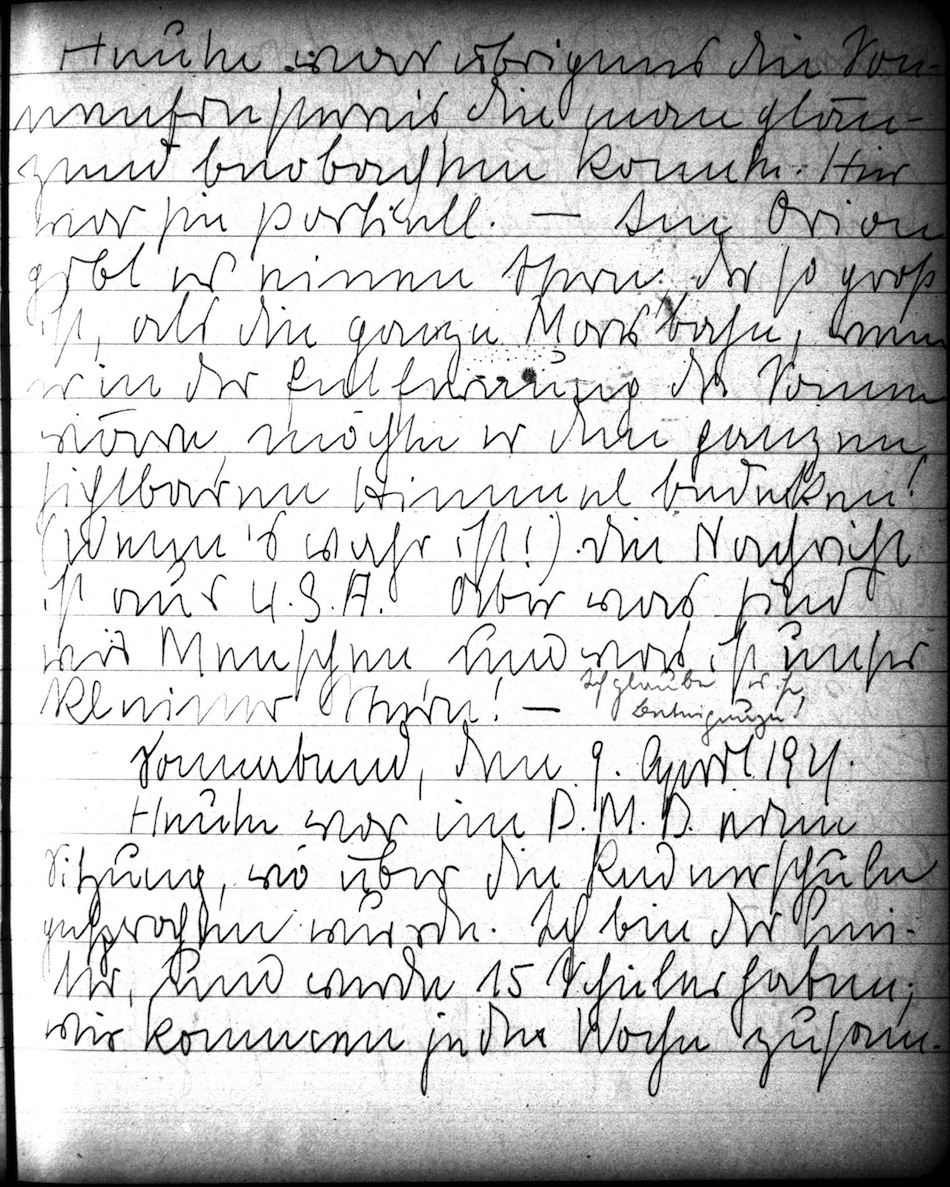 Heute war übrigens die Son-
nenfinsternis die man glän-
zend beobachten konnte. Hier
war sie partiell. — Im Orion
gibt es einen Stern der so groß
ist, als die ganze Marsbahn, wenn
er in der Entfernung der Sonne
wäre, möchte er den ganzen
sichtbaren Himmel bedecken!
(Wenn's wahr ist!). Die Nachricht
ist aus U.S.A. Aber was sind
wir Menschen und was ist unser
kleiner Stern! —
Ich glaube
Sonnabend, den 9. April 1921.
Heute war im D.M.B. eine
Sitzung, wo über die Rednerschule
gesprochen wurde. Ich bin der Lei-
ter, und werde 15 Schüler haben;
wir kommen jede Woche zusam-